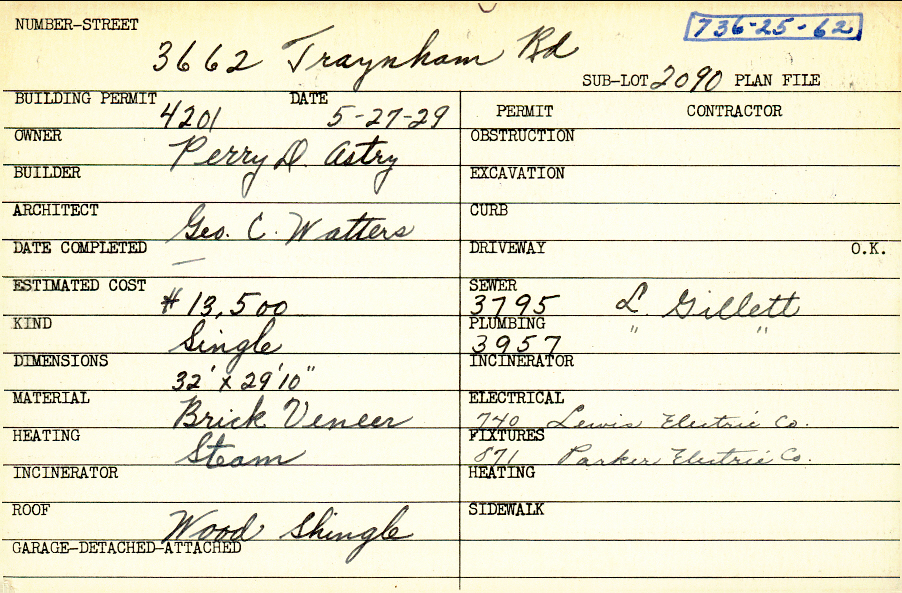 NUMBER-STREET
736-25-62
3662 Traynham Rd
SUB-LOT 2090 PLAN FILE
BUILDING PERMIT 4201 DATE 5-27-29
OWNER Perry D. Astry
BUILDER
ARCHITECT Geo. C. Watters
DATE COMPLETED —
ESTIMATED COST # 13,500
KIND Single
DIMENSIONS 32' x 29'10"
MATERIAL Brick Veneer
HEATING Steam
INCINERATOR
ROOF Wood Shingle
GARAGE-DETACHED-ATTACHED
PERMIT CONTRACTOR
OBSTRUCTION
EXCAVATION
CURB
DRIVEWAY O.K.
SEWER 3795 L. Gillett
PLUMBING 3957 " "
INCINERATOR
ELECTRICAL 740 Lewis Electric Co.
FIXTURES 871 Parker Electric Co.
HEATING
SIDEWALK